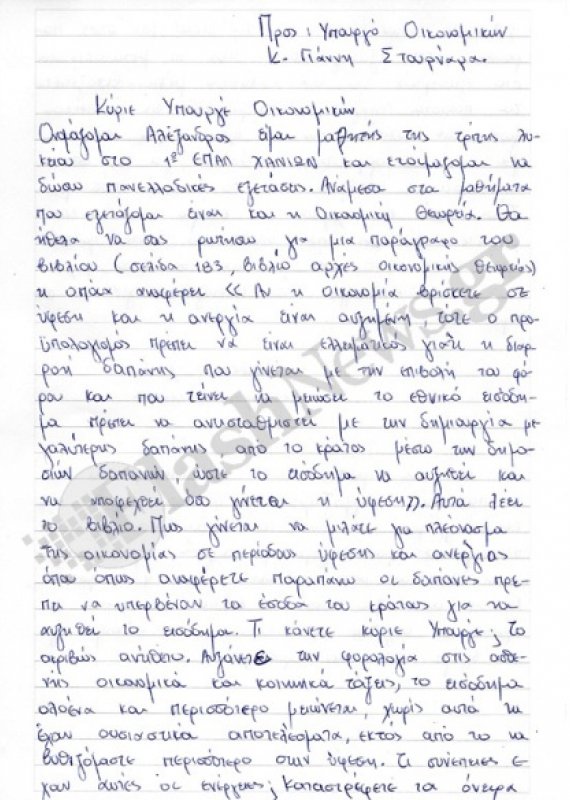 Προς: Υπουργό Οικονομικών
κ. Γιάννη Στουρνάρα.
Κύριε Υπουργέ Οικονομικών
Ονομάζομαι Αλέξανδρος είμαι μαθητής της τρίτης λυ-
κείου στο 1ο ΕΠΑΛ ΧΑΝΙΩΝ και ετοιμάζομαι να
δώσω πανελλαδικές εξετάσεις. Ανάμεσα στα μαθήματα
που εξετάζομαι είναι και η Οικονομική Θεωρία. Θα
ήθελα να σας ρωτήσω για μια παράγραφο του
βιβλίου (σελίδα 183, βιβλίο αρχές οικονομικής θεωρίας)
η οποία αναφέρει << Αν η οικονομία βρίσκετε σε
ύφεση και η ανεργία είναι αυξημένη τότε ο προ-
ϋπολογισμός πρέπει να είναι ελλειματικός γιατί η διαρ-
ροή δαπάνης που γίνεται με την επιβολή του φό-
ρου και που τείνει να μειώσει το εθνικό εισόδη-
μα πρέπει να αντισταθμιστεί με την δημιουργία με-
γαλύτερης δαπάνης από το κράτος μέσω των δημο-
σιών δαπανών ώστε το εισόδημα να αυξηθεί και
να υποφεχθεί όσο γίνεται η ύφεση>>. Αυτά λέει
το βιβλίο. Πως γίνεται να μιλάτε για πλεόνασμα
της οικονομίας σε περίοδους ύφεσης και ανεργίας
όπου όπως αναφέρετε παραπάνω οι δαπάνες πρέ-
πει να υπερβέναν τα έσοδα του κράτους για να
αυξηθεί το εισόδημα. Τι κάνετε κύριε Υπουργέ; Το
ακριβώς αντίθετο. Αυξάνετε την φορολογία στις ασθε-
νής οικονομικά και κοινωνικά τάξεις, το εισόδημα
ολοένα και περισσότερο μειώνεται, χωρίς αυτά να
έχουν ουσιαστικά αποτελέσματα, εκτός από το να
βυθιζόμαστε περισσότερο στην ύφεση. Τι συνέπειες έ-
χουν αυτές οι ενέργειες; Καταστρέφετε τα όνειρα
flashNews.gr